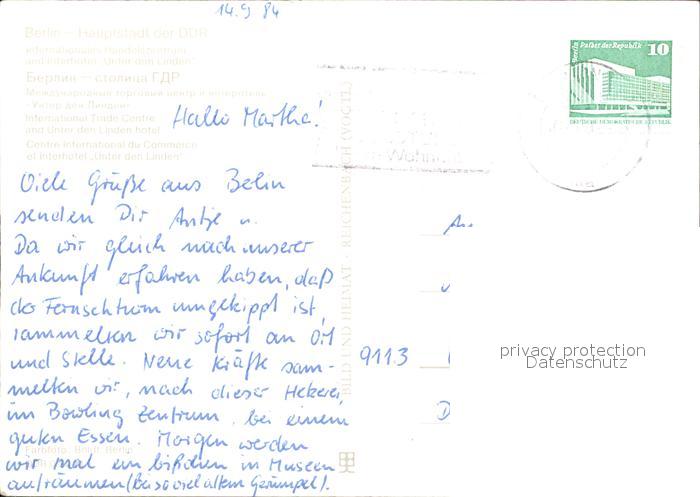 14.9 84
Berlin – Hauptstadt der DDR
Internationales Handelszentrum
und Interhotel "Unter den Linden"
Берлин – столица ГДР
Международный торговый центр и интеротель
"Унтер ден Линден"
International Trade Centre
and Unter den Linden hotel
Centre International du Commerce
et Interhotel "Unter den Linden"
Berlin Palast der Republik 10
DEUTSCHE DEMOKRATISCHE REPUBLIK
Hallo Martha!
Viele Grüße aus Belin
senden Dir Antje u.
Da wir gleich nach unserer
Ankunft erfahren haben, daß
der Fernsehturm umgekippt ist,
sammelten wir sofort an Ort
und Stelle. Neue Kräfte sam-
melten wir, nach dieser Hetzerei,
im Bowling Zentrum, bei einem
guten Essen. Morgen werden
wir mal ein bißchen in Museen
aufräumen (bei so viel altem Gerümpel).
BILD UND HEIMAT · REICHENBACH (VOGTL)
9113
D
privacy protection
Datenschutz